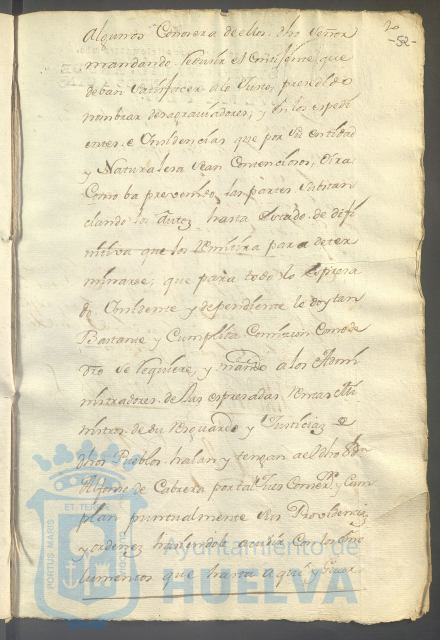 2
-52-
Algunos Conosera de ellos dho Señor
mandando reducir el
deban satisfacer a lo Justo, prendido
nombrar desagraviadores, y en los espedi
entes e Insidencias que por su entidad
y Naturalesa sean Contenciosos, Obra
Como ba prevenido, las partes substan
ciando los Autos hasta estado de difi
nitiva que los remitira para deter
minarse; que para todo lo espresa
do Insidente y dependiente le doy tan
Bastante y Cumplida Comision Como de
dro se requiere, y mando a los Admi
nistradores de las espresadas Rentas Mi
nistros de su Resguardo y Justicias de
dhos Pueblos halan y tengan a el dho Dn
Alfonso de Cabrera por tal Jues y Cum
plan puntualmente sus Providencias
y ordenes haciendole acudir Con los emo
lumentos que hasta aqui y Guar
PORTUS MARIS
ET TERRAE
CUSTODIA
Ayuntamiento de
HUELVA